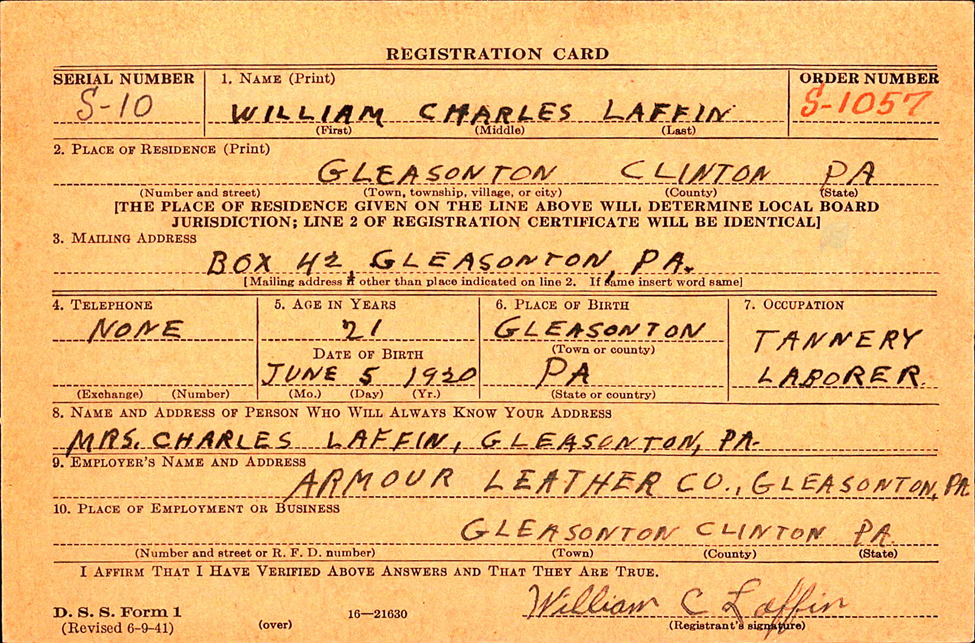 REGISTRATION CARD
SERIAL NUMBER 1. NAME (Print) ORDER NUMBER
S-10 WILLIAM CHARLES LAFFIN S-1057
(First) (Middle) (Last)
2. PLACE OF RESIDENCE (Print)
GLEASONTON CLINTON PA
(Number and street) (Town, township, village, or city) (County) (State)
[THE PLACE OF RESIDENCE GIVEN ON THE LINE ABOVE WILL DETERMINE LOCAL BOARD
JURISDICTION; LINE 2 OF REGISTRATION CERTIFICATE WILL BE IDENTICAL]
3. MAILING ADDRESS
BOX 42, GLEASONTON, PA.
[Mailing address if other than place indicated on line 2. If same insert word same]
4. TELEPHONE 5. AGE IN YEARS 6. PLACE OF BIRTH 7. OCCUPATION
NONE 21 GLEASONTON TANNERY
DATE OF BIRTH (Town or county)
JUNE 5 1920 PA LABORER.
(Exchange) (Number) (Mo.) (Day) (Yr.) (State or country)
8. NAME AND ADDRESS OF PERSON WHO WILL ALWAYS KNOW YOUR ADDRESS
MRS. CHARLES LAFFIN, GLEASONTON, PA.
9. EMPLOYER'S NAME AND ADDRESS
ARMOUR LEATHER CO., GLEASONTON, PA
10. PLACE OF EMPLOYMENT OR BUSINESS
GLEASONTON CLINTON PA.
(Number and street or R. F. D. number) (Town) (County) (State)
I AFFIRM THAT I HAVE VERIFIED ABOVE ANSWERS AND THAT THEY ARE TRUE.
D. S. S. Form 1 16—21630 William C Laffin
(Revised 6-9-41) (over) (Registrant's signature)